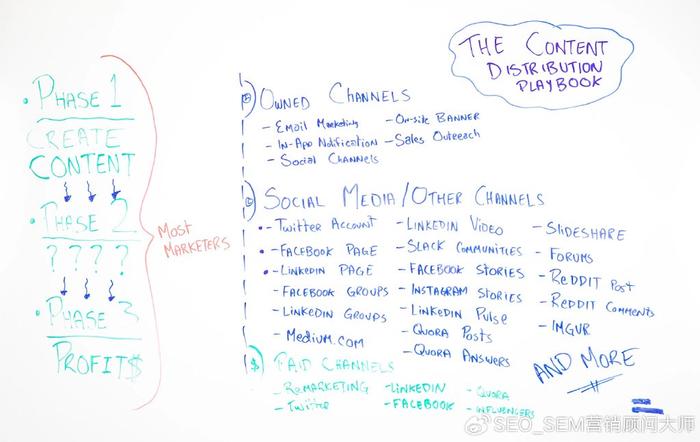 THE CONTENT
DISTRIBUTION
PLAYBOOK
• PHASE 1
CREATE
CONTENT
• PHASE 2
? ? ? ?
• PHASE 3
PROFIT$
MOST
MARKETERS
OWNED CHANNELS
- EMAIL MARKETING - ON-SITE BANNER
- IN-APP NOTIFICATION - SALES OUTREACH
- SOCIAL CHANNELS
SOCIAL MEDIA/OTHER CHANNELS
• - TWITTER ACCOUNT - LINKEDIN VIDEO - SLIDESHARE
• - FACEBOOK PAGE - SLACK COMMUNITIES - FORUMS
• - LINKEDIN PAGE - FACEBOOK STORIES - REDDIT POST
- FACEBOOK GROUPS - INSTAGRAM STORIES - REDDIT COMMENTS
- LINKEDIN GROUPS - LINKEDIN PULSE - IMGUR
- MEDIUM.COM - QUORA POSTS
- QUORA ANSWERS
AND MORE
$ PAID CHANNELS
- REMARKETING - LINKEDIN - QUORA
- TWITTER - FACEBOOK - INFLUENCERS
@SEO_SEM营销顾问大师